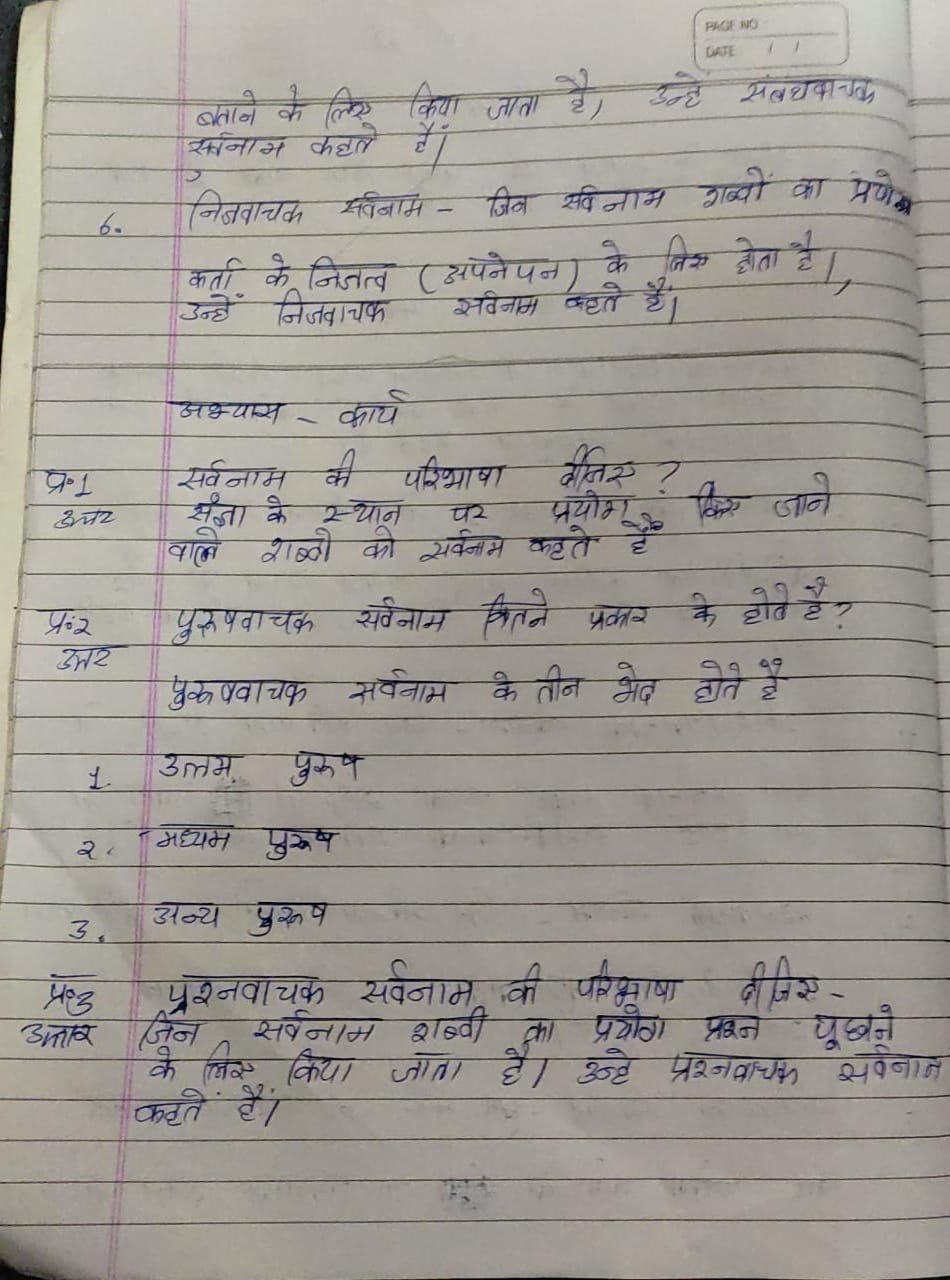 PAGE NO
DATE / /
बताने के लिए किया जाता है, उन्हें संबंधवाचक
सर्वनाम कहते हैं।
6. निजवाचक सर्वनाम - जिन सर्वनाम शब्दों का
कर्ता के निजत्व (अपनेपन) के लिए होता है,
उन्हें निजवाचक सर्वनाम कहते हैं।
अभ्यास - कार्य
प्र॰1 सर्वनाम की परिभाषा दीजिए?
उत्तर संज्ञा के स्थान पर प्रयोग किए जाने
वाले शब्दो को सर्वनाम कहते हैं
प्र॰२ पुरुषवाचक सर्वनाम कितने प्रकार के होते है?
उत्तर
पुरुषवाचक सर्वनाम के तीन भेद होते है
1. उत्तम पुरुष
२. मध्यम पुरुष
3. अन्य पुरुष
प्र॰3 प्रश्नवाचक सर्वनाम की परिभाषा दीजिए -
उत्तर जिन सर्वनाम शब्दों का प्रयोग प्रश्न पूछने
के लिए किया जाता है। उन्हे प्रश्नवाचक सर्वनाम
कहते हैं।